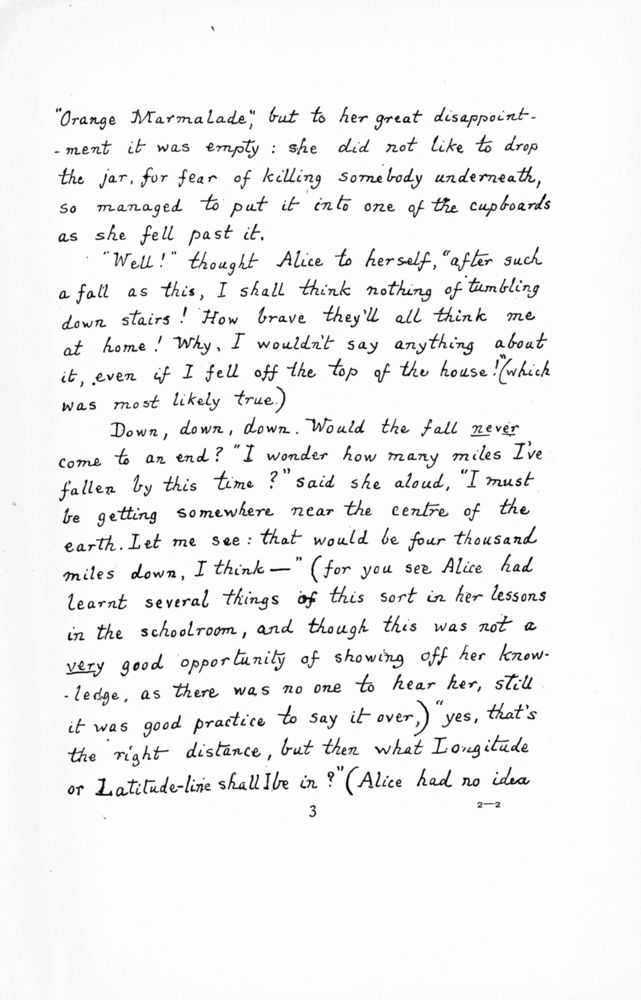 "Orange Marmalade", but to her great disappoint-
-ment it was empty : she did not like to drop
the jar, for fear of killing somebody underneath,
so managed to put it into one of the cupboards
as she fell past it.
"Well!" thought Alice to herself, "after such
a fall as this, I shall think nothing of tumbling
down stairs! How brave they'll all think me
at home! Why, I wouldn't say anything about
it, even if I fell off the top of the house!" (which
was most likely true.)
Down, down, down. Would the fall never
come to an end? "I wonder how many miles I've
fallen by this time?" said she aloud, "I must
be getting somewhere near the centre of the
earth. Let me see : that would be four thousand
miles down, I think—" (for you see Alice had
learnt several things of this sort in her lessons
in the schoolroom, and though this was not a
very good opportunity of showing off her know-
-ledge, as there was no one to hear her, still
it was good practice to say it over,) "yes, that's
the right distance, but then what Longitude
or Latitude-line shall I be in?" (Alice had no idea
3
2—2